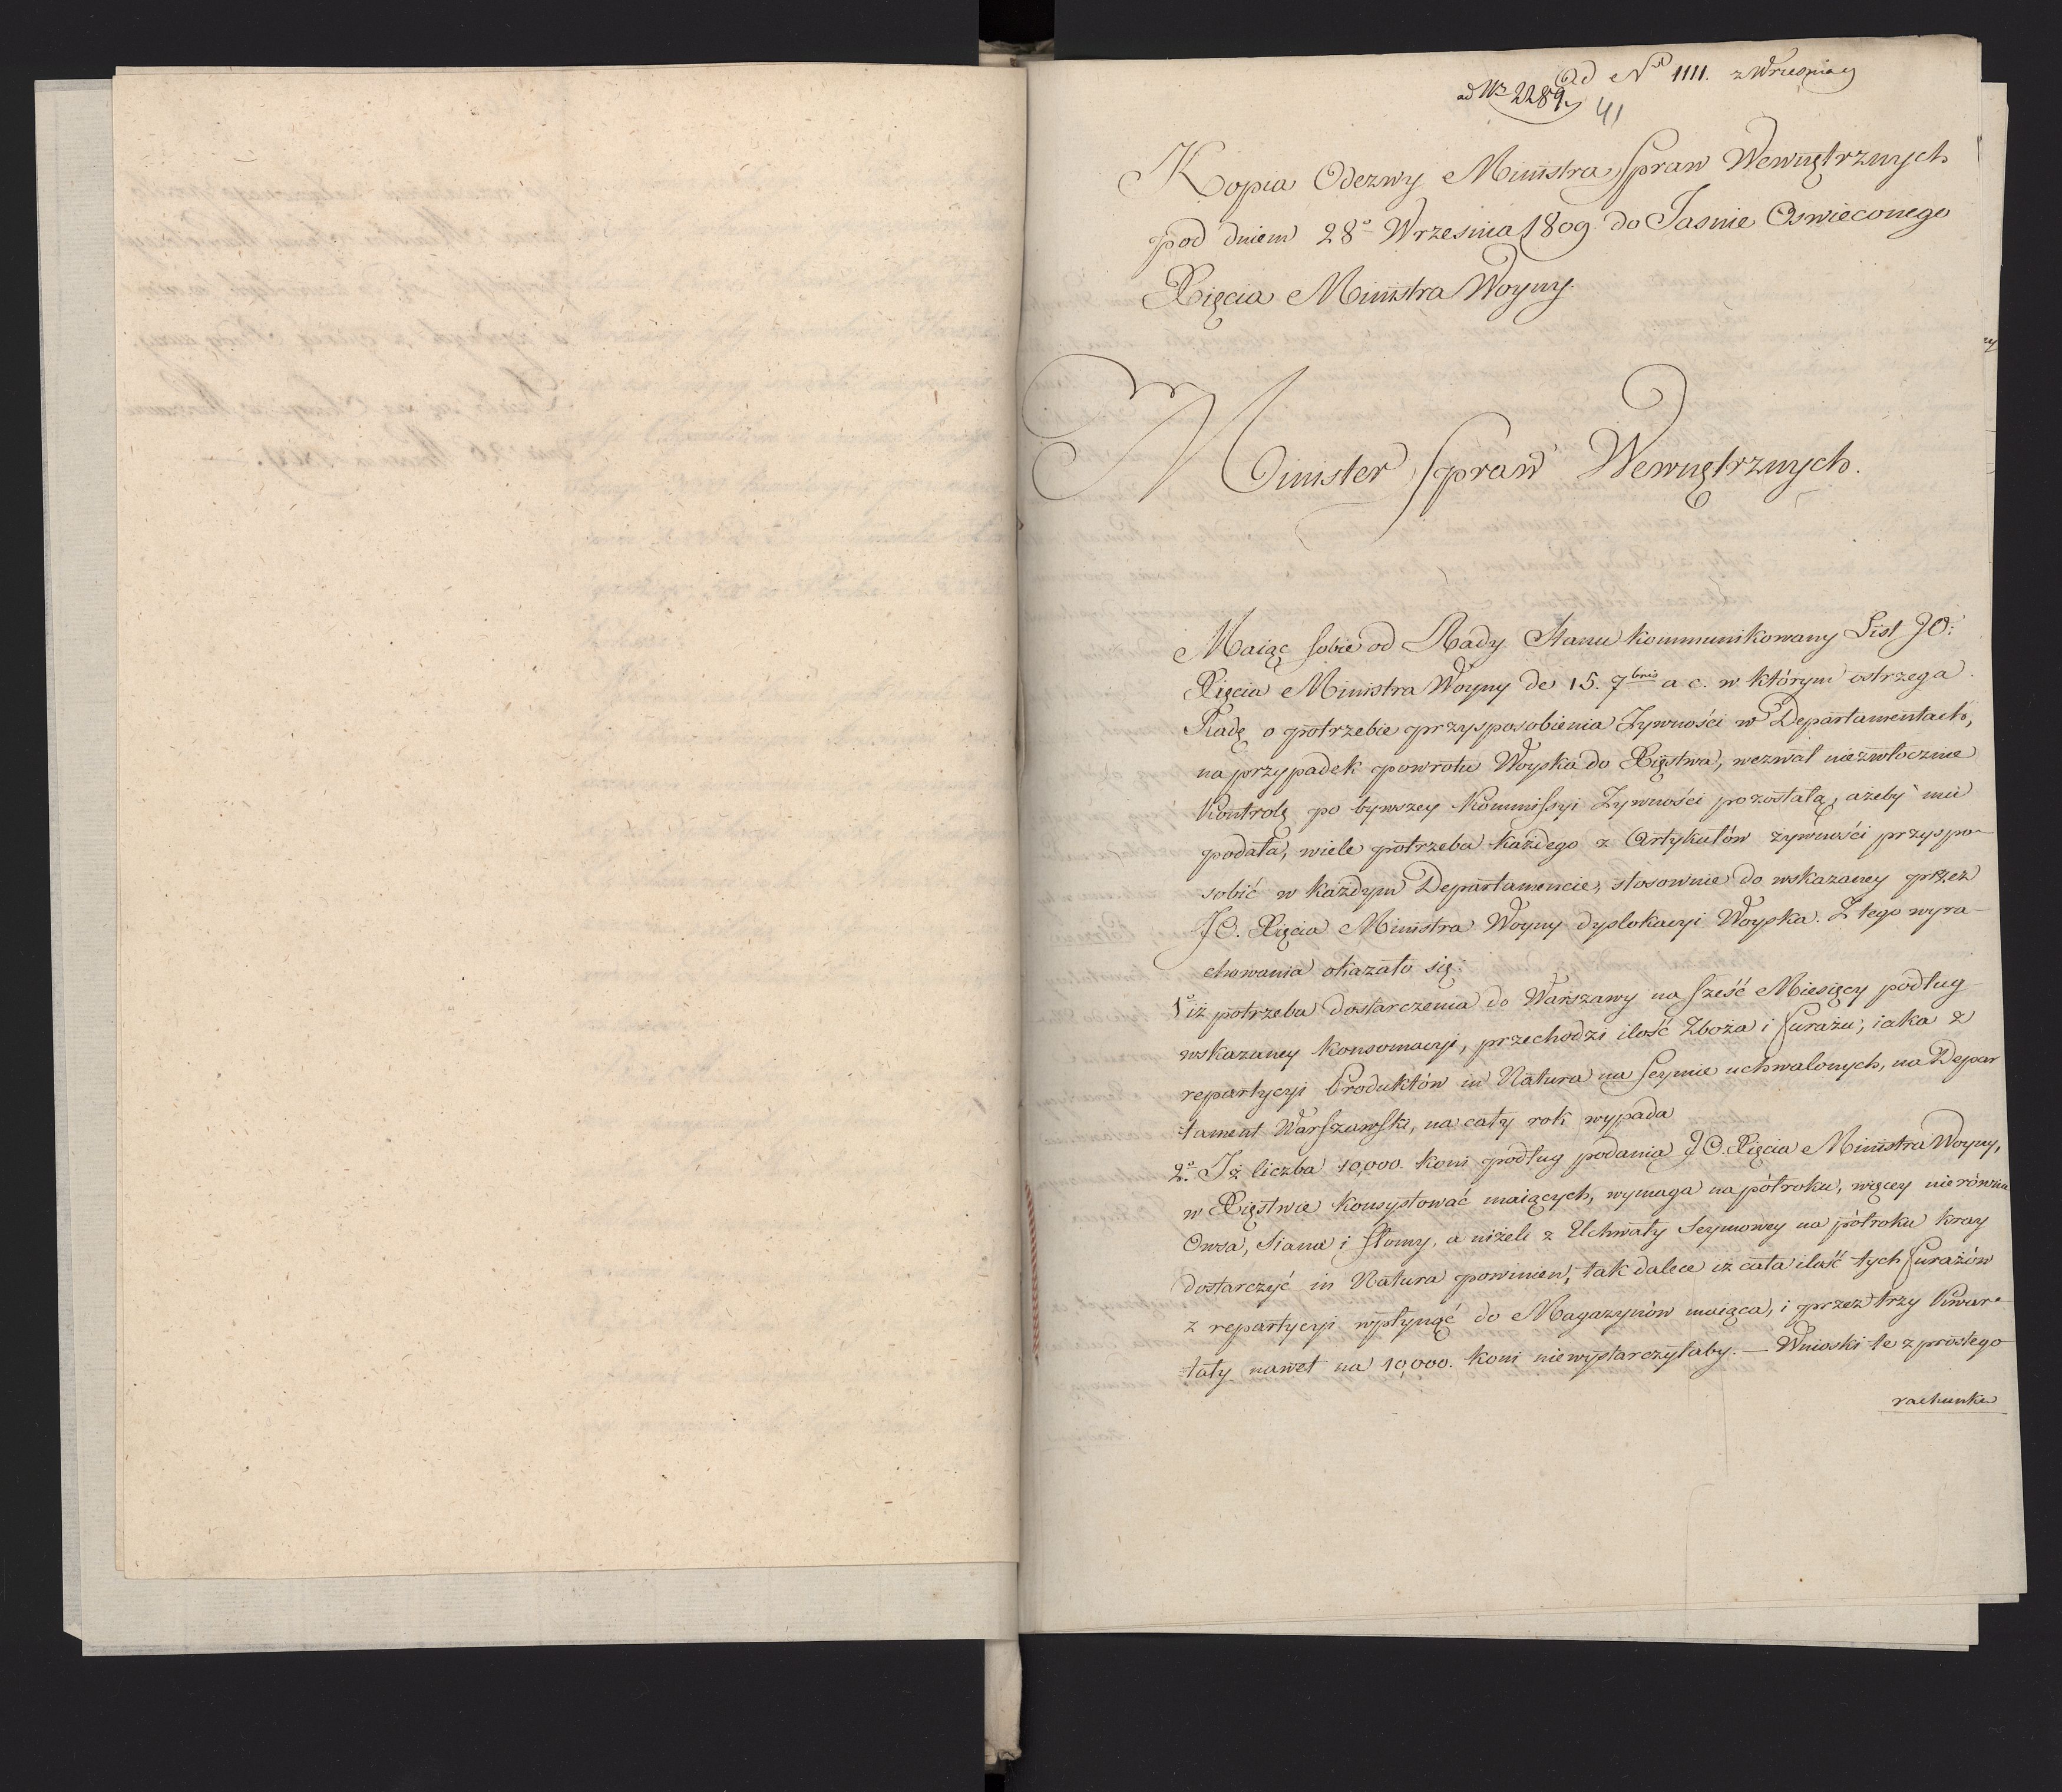 Ad Nr̲ 1111. z Wrzesnia
ad Nr̲ 2289.
41
Kopia Odezwy Ministra Spraw Wewnętrznych
pod dniem 28° Wrzesnia 1809 do Jasnie Oswieconego
Xięcia Ministra Woyny.
Minister Spraw Wewnętrznych.
Maiąc sobie od Rady Stanu kommunikowany List JO:
Xięcia Ministra Woyny de 15. 7bris a c. w którym ostrzega
Radę o potrzebie przysposobienia Żywności w Departamentach,
na przypadek powrotu Woyska do Xięstwa, wezwał niezwłocznie
Kontrolę po bywszey Kommissyi Żywności pozostałą, ażeby mu
podała, wiele potrzeba każdego z Artykułów żywności przyspo-
sobić w każdym Departamencie, stosownie do wskazaney przez
JO. Xięcia Ministra Woyny dyslokacyi Woyska. Z tego wyra-
chowania okazało się:
1° iż potrzeba dostarczenia do Warszawy na sześć Miesięcy podług
wskazaney konsomacyi, przechodzi ilość Zboża i furażu, iaka z
repartycyi Produktów in Natura na Seymie uchwalonych, na Depar
tament Warszawski, na cały rok wypada
2° Iż liczba 10,000. koni podług podania JO. Xięcia Ministra Woyny,
w Xięstwie konsystować maiących, wymaga na półroku, więcey nierównie
Owsa, Siana i Słomy, a niżeli z Uchwały Seymowey na półroku kray
dostarczyć in Natura powinien, tak dalece iż cała ilość tych furażów
z repartycyi wpłynąć do Magazynów maiąca, i przez trzy Kwar-
tały nawet na 10,000. koni niewystarczyłaby. — Wnioski te z prostego
rachunku